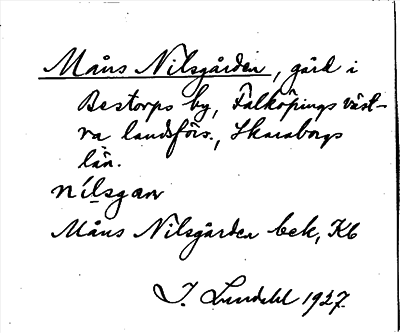 Måns Nilsgården, gård i
Bestorps by, Falköpings väst-
ra landsförs., Skaraborgs
län.
nílsgaṇ
Måns Nilsgården bek, Kb
I. Lundahl 1927.